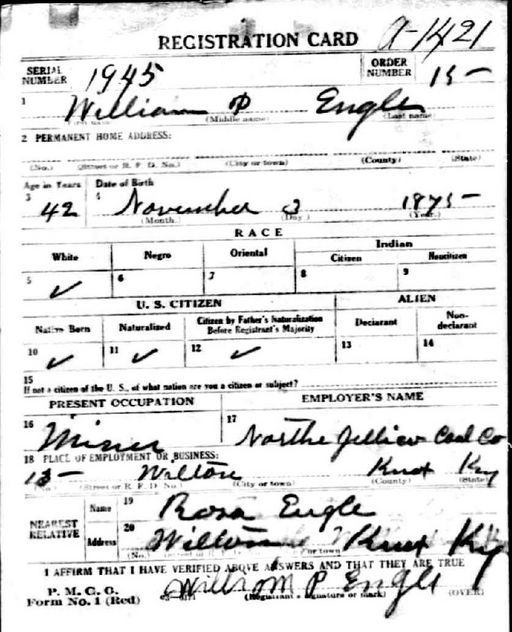 REGISTRATION CARD A-1421
SERIAL NUMBER 1945 ORDER NUMBER 15-
1 William P Engle
(Middle name) (Last name)
2 PERMANENT HOME ADDRESS:
(No.) (Street or R. F. D. No.) (City or town) (County) (State)
Age in Years Date of Birth
3 42 4 November 3 1875-
(Month.) (Day.) (Year.)
RACE
White Negro Oriental Indian
Citizen Noncitizen
5 ✓ 6 7 8 9
U. S. CITIZEN ALIEN
Native Born Naturalized Citizen by Father's Naturalization Before Registrant's Majority Declarant Non-declarant
10 ✓ 11 ✓ 12 ✓ 13 14
15
If not a citizen of the U. S., of what nation are you a citizen or subject?
PRESENT OCCUPATION EMPLOYER'S NAME
16 Miner 17 Northe Jellico Coal Co
18 PLACE OF EMPLOYMENT OR BUSINESS:
Wilton Knox Ky
(Street or R. F. D. No.) (City or town) (County) (State)
NEAREST RELATIVE
Name 19 Rosa Engle
Address 20 Wilton Knox Ky
(No.) or town)
I AFFIRM THAT I HAVE VERIFIED ABOVE ANSWERS AND THAT THEY ARE TRUE
P. M. G. O.
Form No. 1 (Red) William P Engle
(Registrant's signature or mark) (OVER)